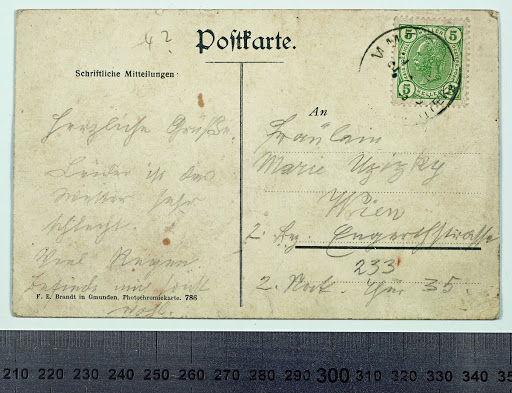 42
Postkarte.
5 HELLER 5
22
Schriftliche Mitteilungen:
An
Herzliche Grüße.
Leider ist das
Wetter sehr
schlecht.
Viel Regen
befinde mich sonst
wohl.
Fräulein
Marie Uzizky
Wien
2. Bez. Engerthstrasse
233
2. Stock. Thür 35.
F. E. Brandt in Gmunden, Photochromiekarte. 786
210 220 230 240 250 260 270 280 290 300 310 320 330 340 35